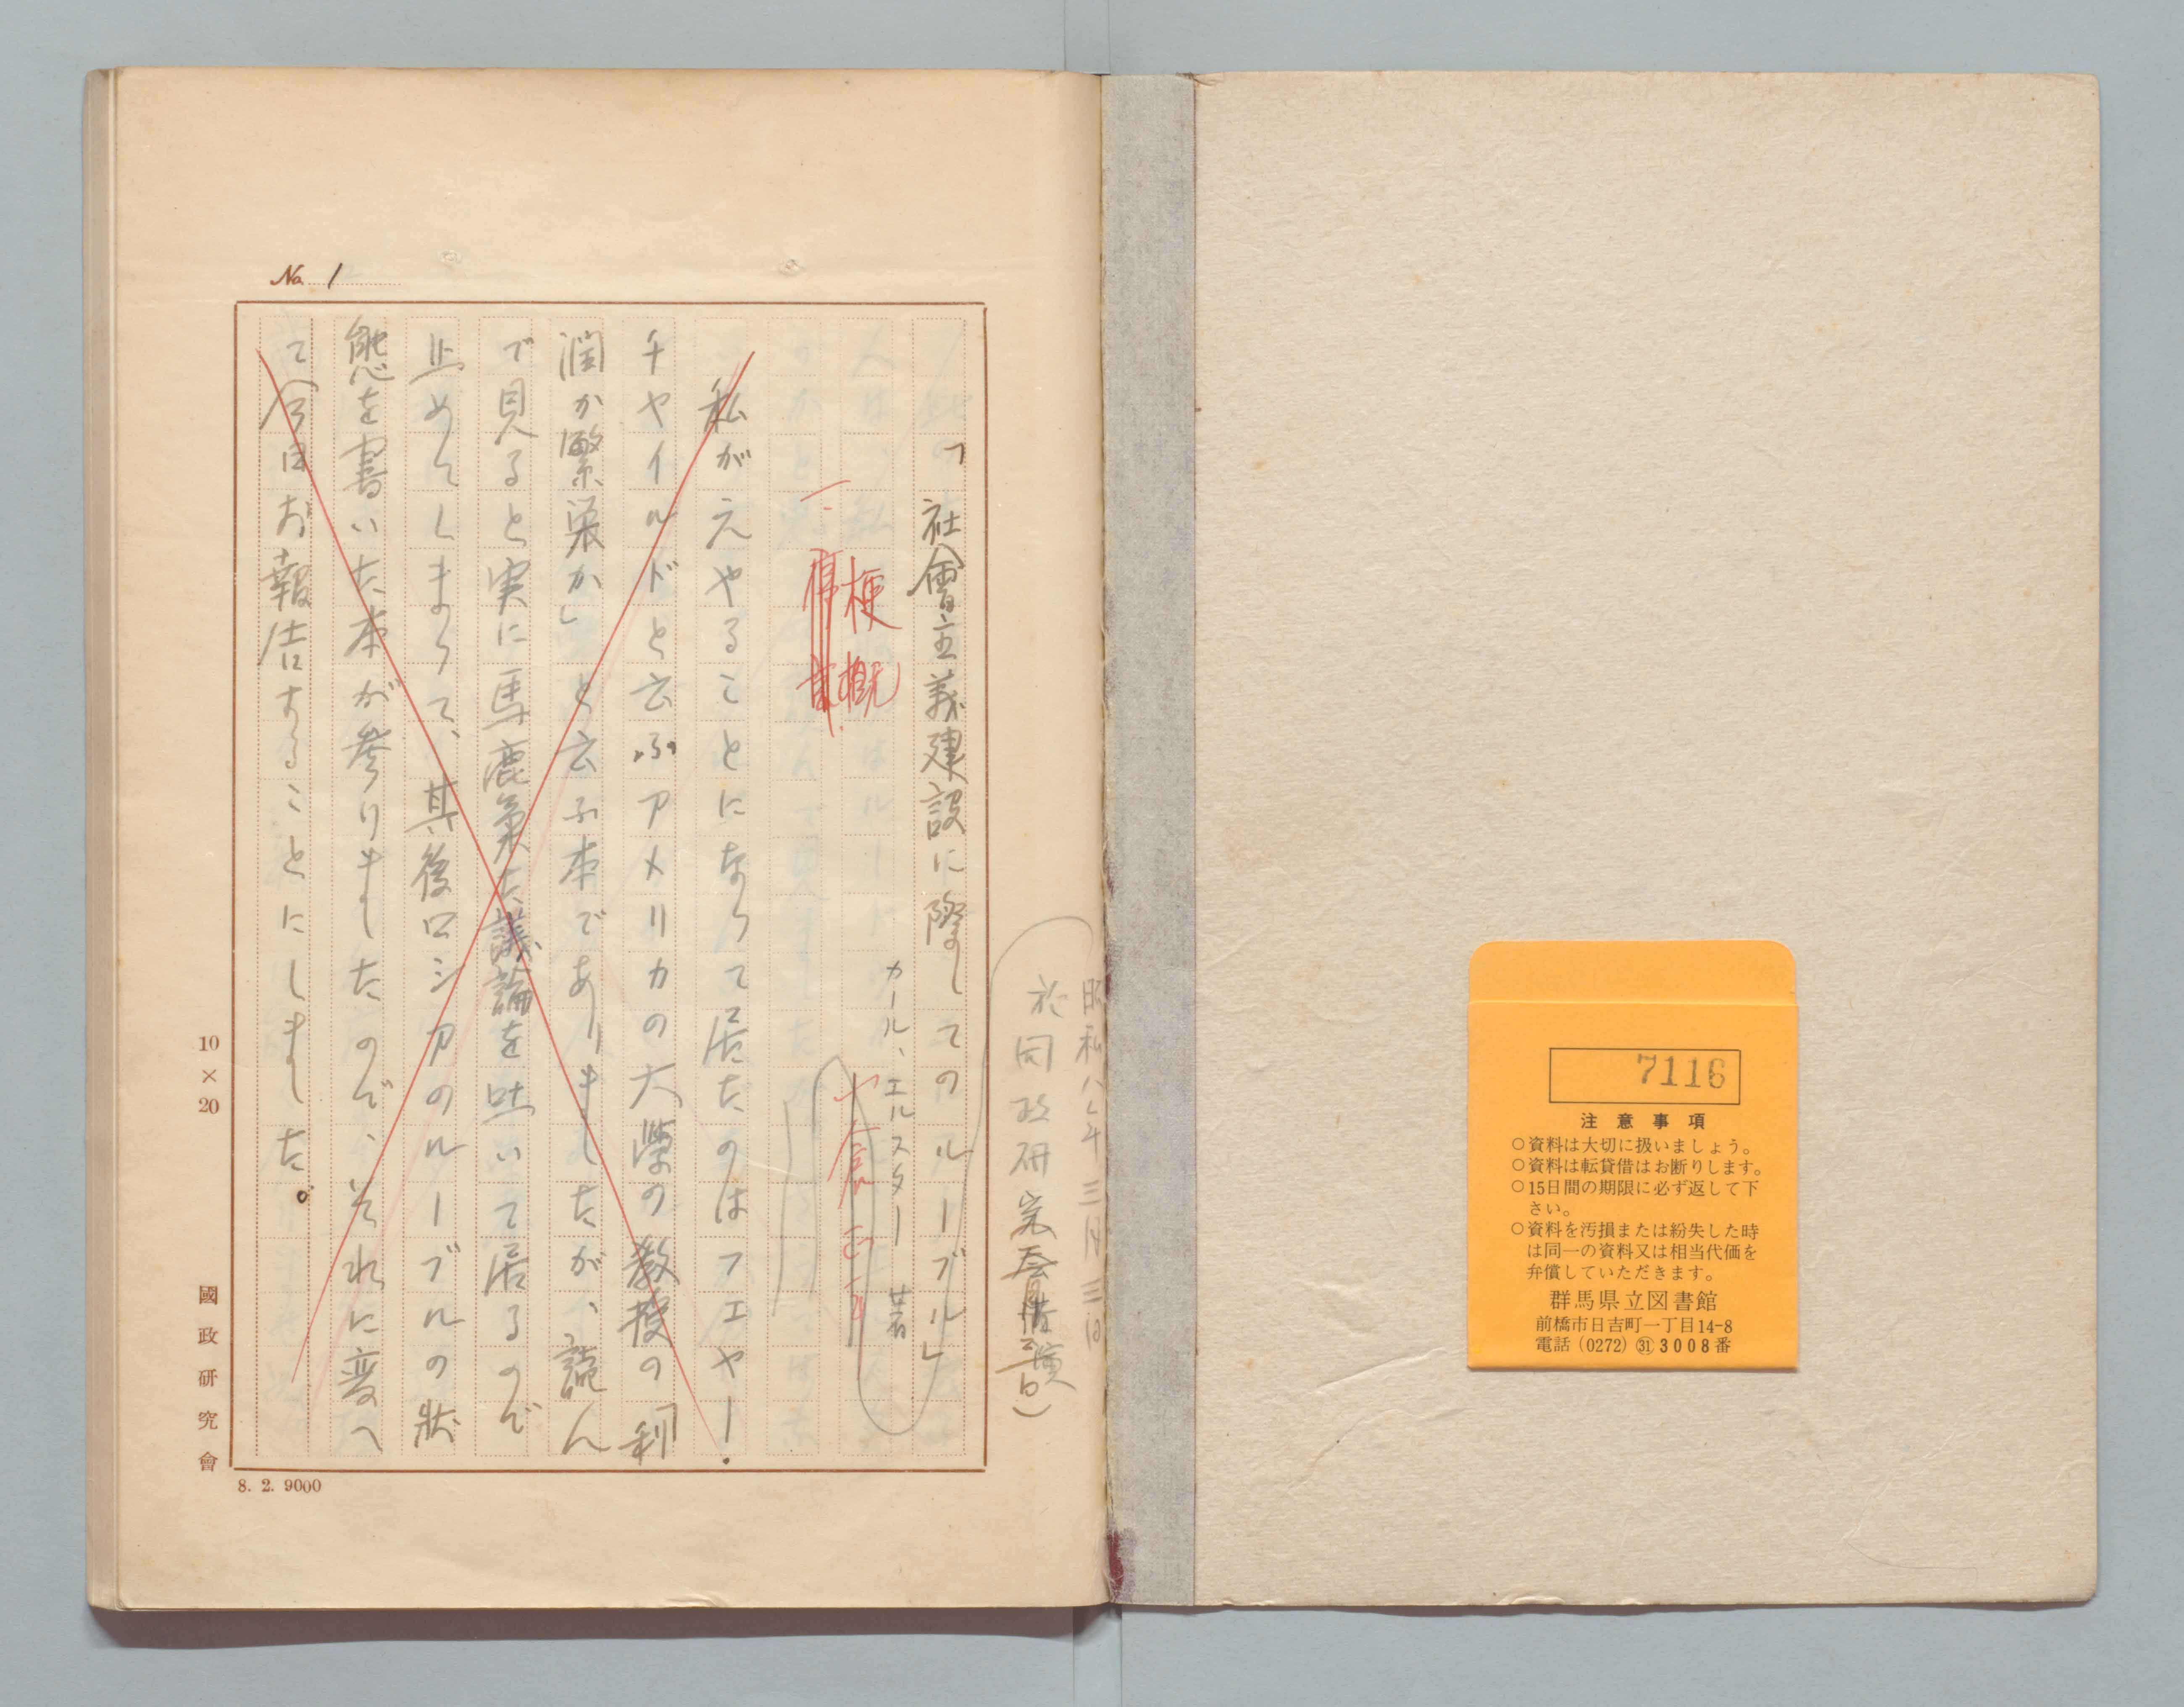 7116
注意事項
○資料は大切に扱いましょう。
○資料は転貸借はお断りします。
○15日間の期限に必ず返して下
さい。
○資料を汚損または紛失した時
は同一の資料又は相当代価を
弁償していただきます。
群馬県立図書館
前橋市日吉町一丁目14-8
電話(0272)㉛3008番
昭和八年三月三日
於国政研究会
No. 1
「社會主義建設に際してのルーブル」
カール、エルスター 著
梗概
一.
私が元やることになって居たのはフエヤー.
チヤイルドと云ふアメリカの大學の教授の「利
潤か繁榮か」と云ふ本でありましたが、読ん
で見ると実に馬鹿気た議論を吐いて居るので
止めてしまって、其後ロシアのルーブルの狀
態を書いた本が参りましたので、それに変へ
て今日お報告することにしました。
10×20
國政研究會
8. 2. 9000